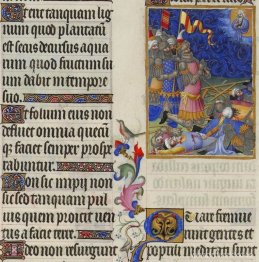 Et erit tanquam lig
num quod plantatū
est secus decursus aqua
rum quod fructum su
um dabit in tempore
suo.
Et folium eius non
defluet omnia quecū
q̄ faciet semper prospe
rabuntur.
Non sic impij non
sic sed tanquam pul
uis quem proicit uen
tus a facie terre.
Ideo non resurgunt
Quare fremue
runt gentes et
populi meditati sunt